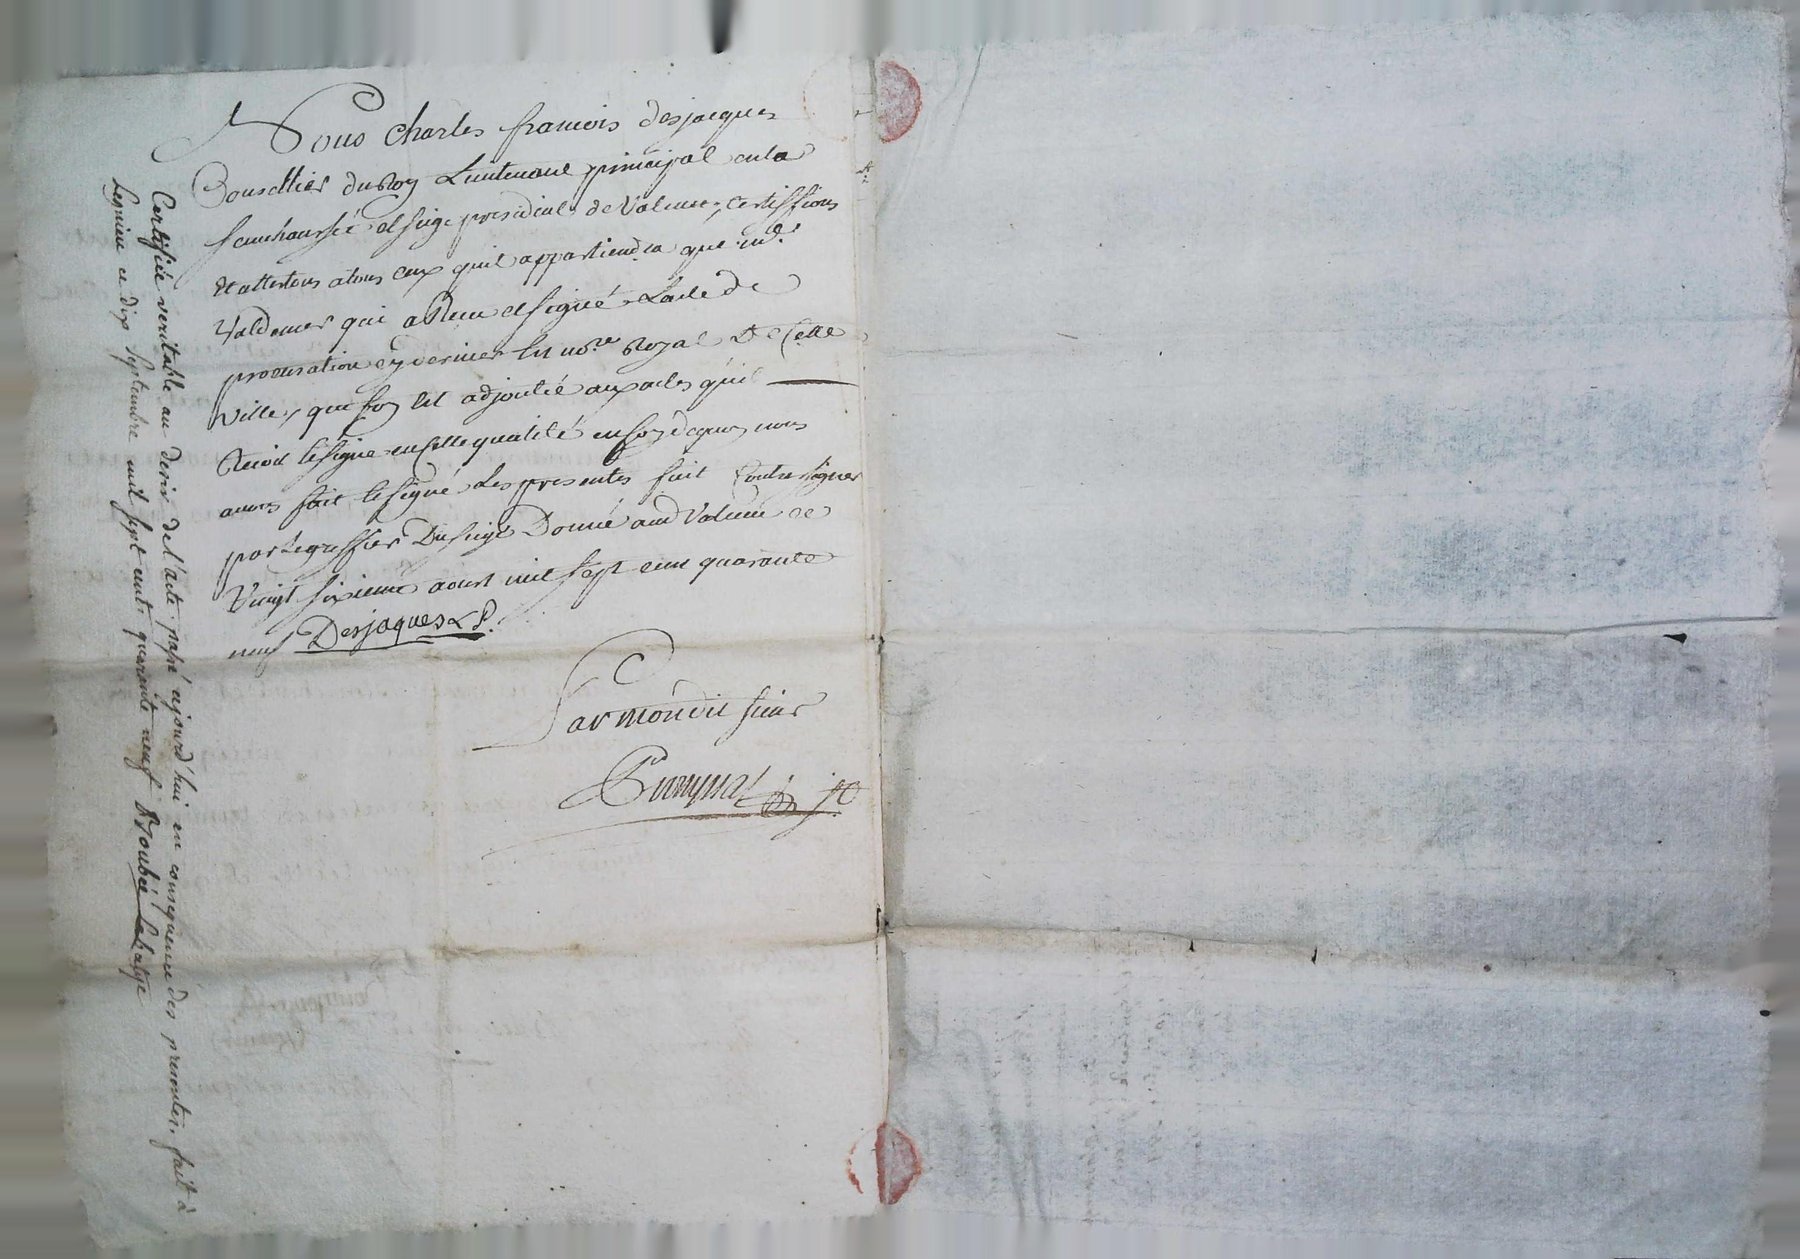 Nous Charles francois desjacques
Conseillier du Roy Lieutenant principal en la
senechaussée et siege presidial de Valence, certiffions
et attestons atous ceux quil appartiendra que me.
Valdemer qui a Receu et signé Lacte de
procuration cy dernier est nore. Royal de Cette
ville, que foy est adjoutée aux actes quil
Recoit et signe en cette qualité en foy de quoy nous
avons fait et signé les presentes fait Contresigner
par le greffier du siege Donné aud Valence le
Vingt sixieme aoust mil sept cent quarante
neuf Desjaques L P.
Par mondit sieur
Certifiée veritable au desir de l'acte passé aujourd'hui en consequence des presentes. fait à
ce dix septembre mil sept cent quarante neuf